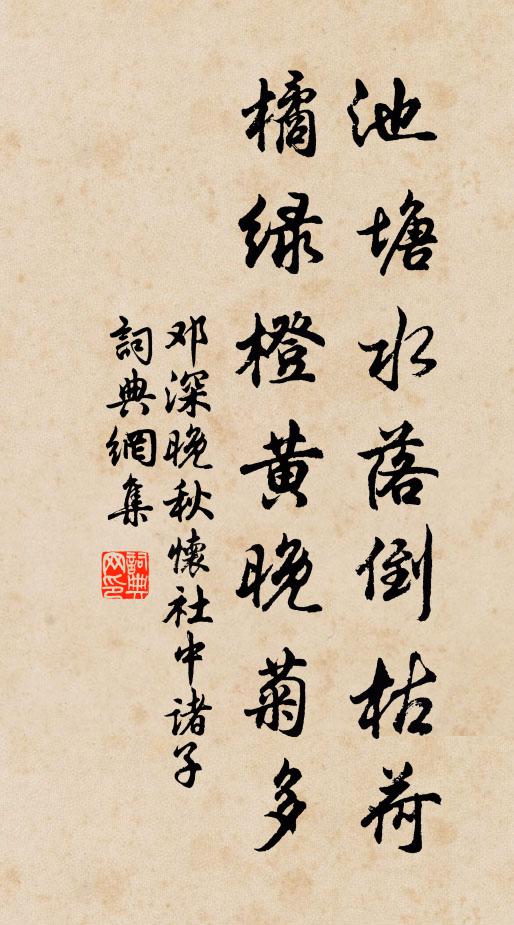 池塘水落倒枯荷
橘绿橙黄晚菊多
邓深晚秋懷社中諸子
詞典網集
詞典網印